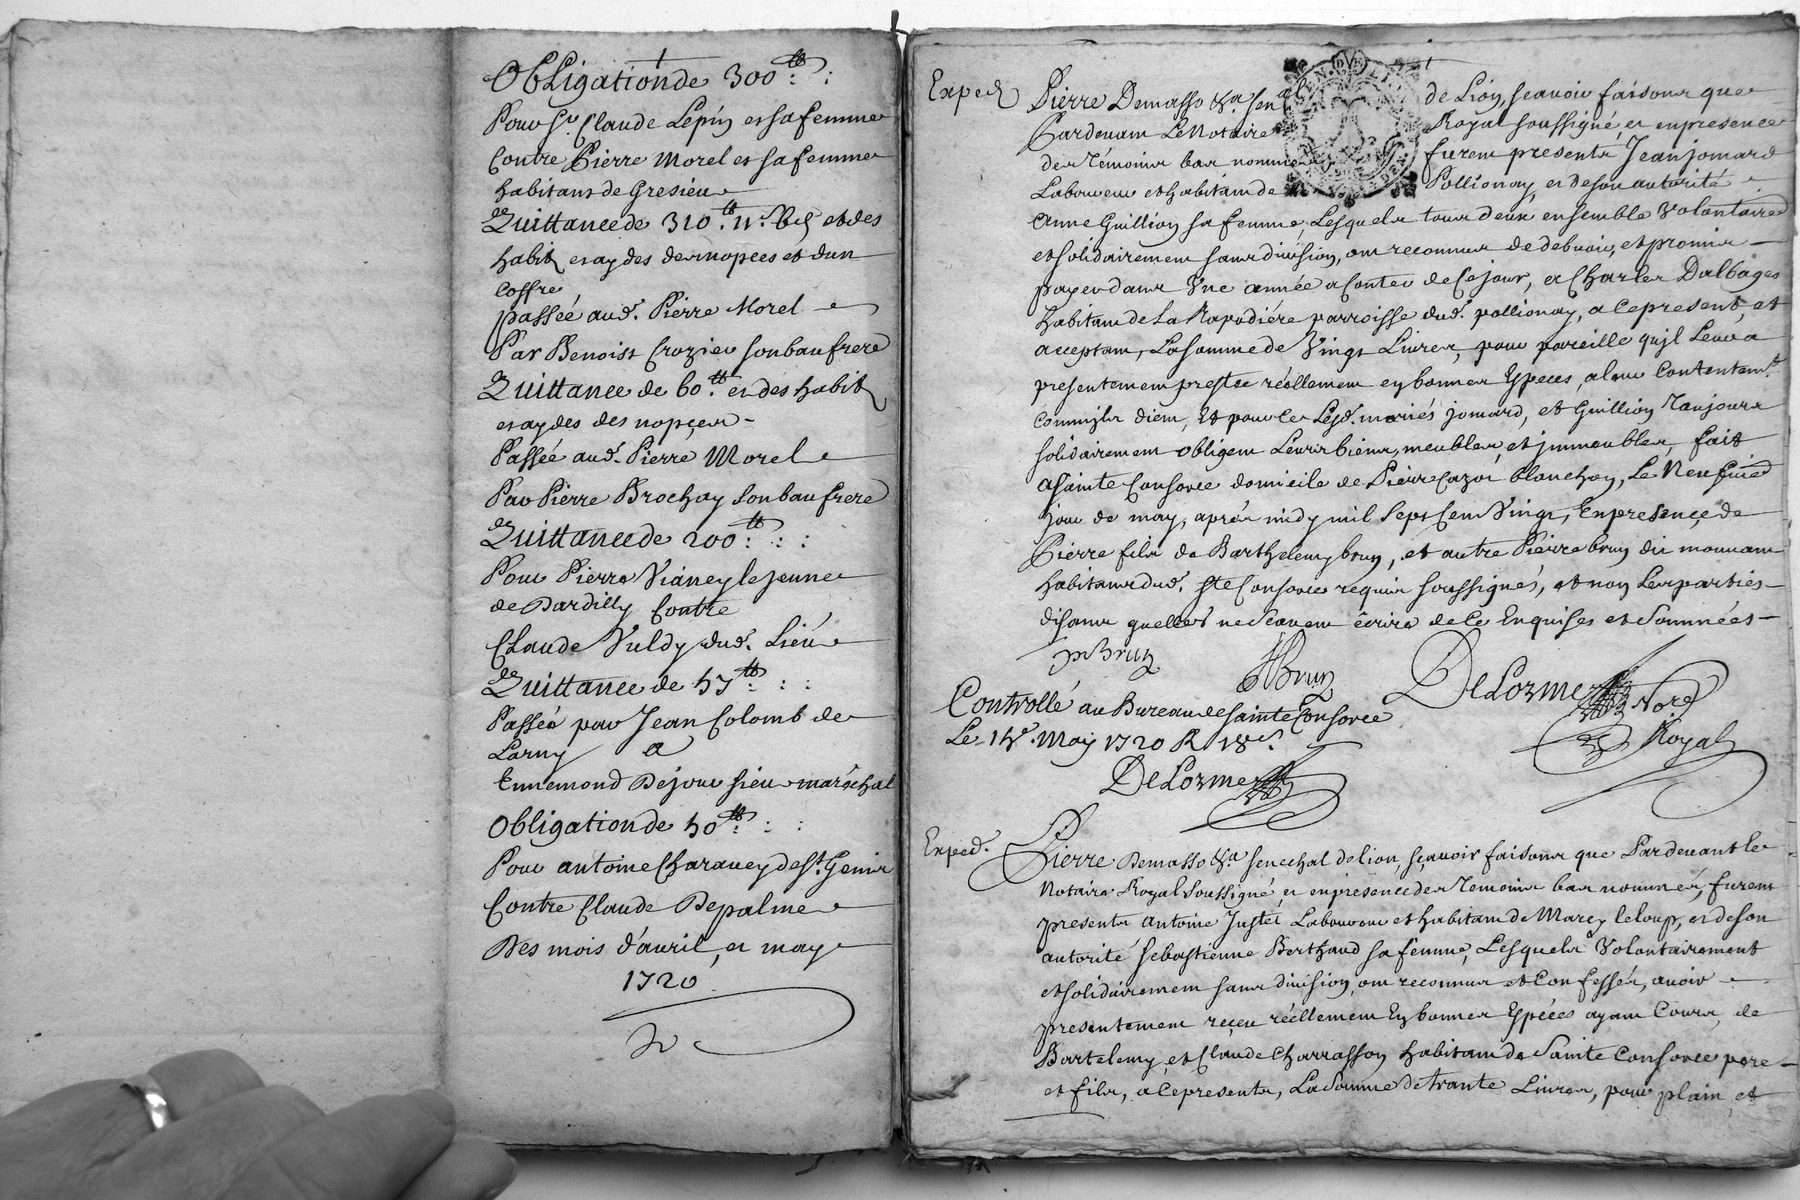 Obligation de 300 ℔ : :
Pour Sr. Claude Lepin et sa femme
Contre Pierre Morel et sa femme
habitans de Gresieu
Quittance de 310 ℔ et des
habit et aydes des nopces et d'un
Coffre
passée aud. Pierre Morel
Par Benoist Crozier son beaufrere
Quittance de 60 ℔ et des habit
et aydes des nopces
Passée aud. Pierre Morel
Par Pierre Brochay son beaufrere
Quittance de 200 ℔ : : :
Pour Pierre Vianey le jeune
de Dardilly Contre
Claude Vuldy dud. Lieu
Quittance de 57 ℔ : : :
Passée par Jean Colomb de
Larny a
Ennemond Dejoue sieur maréchal
Obligation de 50 ℔ : : :
Pour antoine Charavey de St. Genis
Contre Claude Depalme
Des mois d'avril, et may
1720
Exped
Pierre Demasso &a sen al de Lion, sçavoir faisons que
Pardevant Le Notaire Royal soussigné, et en presence
des Témoins bas nommés furent presents Jean jomard
Laboureur et habitant de Pollionay, et de son autorité
Anne Guillion sa femme, Lesquels tous deux ensemble Volontaire
et solidairement sans division, ont reconnus de debvoir, et promis
payer dans Une année a Conter de Ce jour, a Charles Dalbages
habitant de La Rapodiére parroisse dud. pollionay, a Ce present, et
acceptant, La somme de Vingt Livres, pour pareille qu'jl Leur a
presentement prestée réellement en bonnes Especes, a leur Contentemt.
Comm'jls disent, Et pour Ce Lesd. mariés jomard, et Guillion Toujours
solidairement obligent Leurs biens, meubles, et jmmeubles, fait
a Sainte Consorce domicile de Pierre Cazot blanchon, Le Neufvied
jour de may, aprés midy mil sept Cent Vingt, En presence de
Pierre fils de Barthelemy brun, et autre Pierre brun dit mouvant
habitants dud. Ste Consorce requis soussignés, et non Les parties
disants quelles ne Scavent écrire de Ce Enquises et Sommées
P Brun
P Brun
DeLorme Nore
Royal
Controllé au Bureau de Sainte Consorce
Le 15e. May 1720 R 18s.
DeLorme
Exped.
Pierre Demasso &a senechal de lion, sçavoir faisons que Pardevant le
Notaire Royal Soussigné, et en presence des Temoins bas nommés, furent
presents antoine Juste Laboureur et habitant de Marcy le loup, et de son
autorité sebastienne Berthaud sa femme, Lesquels Volontairement
et solidairement sans division, ont reconnus et Confessés, avoir
presentement reçeu réellement En bonnes Espéces ayant Cours, de
Bartelemy, et Claude Charrasson habitant de Sainte Consorce pere
et fils, a Ce presents, La Somme de trante Livres, pour plain et